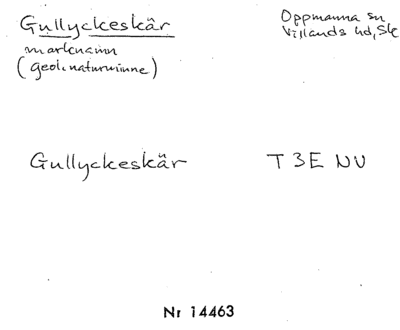 Gullyckeskär
marknamn
(geol. naturminne)
Oppmanna sn
Villands hd, Sk
Gullyckeskär T 3E NV
Nr 14463